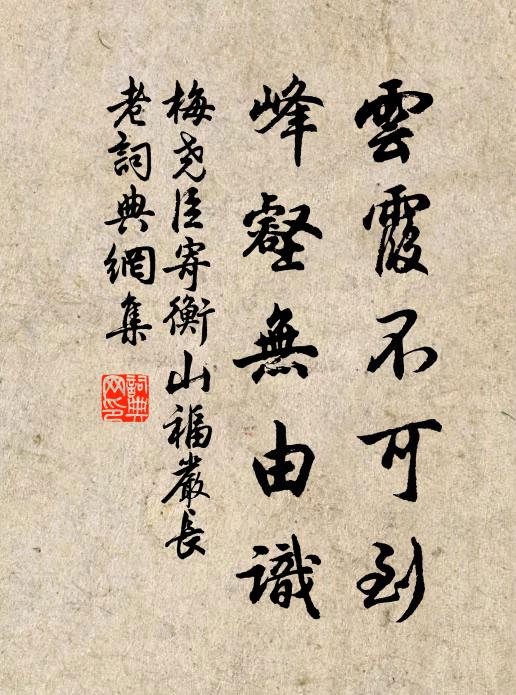 雲霞不可到
峰壑無由識
梅尧臣寄衡山福嚴長
老詞典網集
詞典
网印